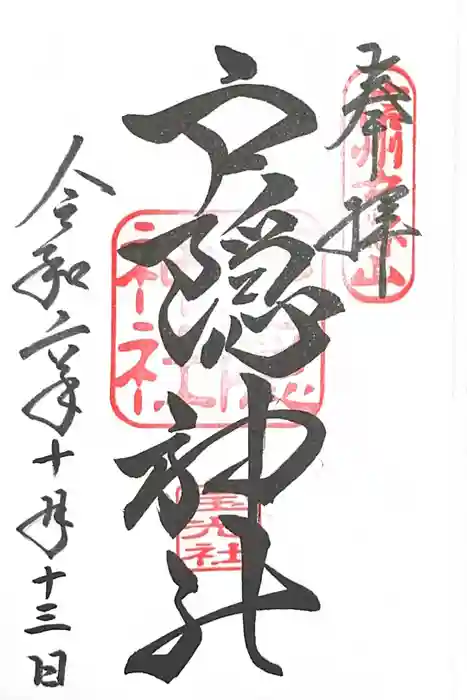 奉拝
信州戸隠山
戸隠神社
戸隠神社
宝光社
令和六年十月十三日